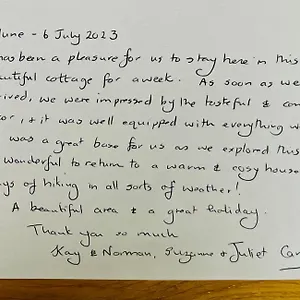 June - 6 July 2023
has been a pleasure for us to stay here in this
beautiful cottage for a week. As soon as we
rived, we were impressed by the tasteful &
or, & it was well equipped with everything
was a great base for us as we explored this
wonderful to return to a warm & cosy house
ys of hiking in all sorts of weather!
A beautiful area & a great holiday.
Thank you so much
Kay & Norman, Suzanne & Juliet